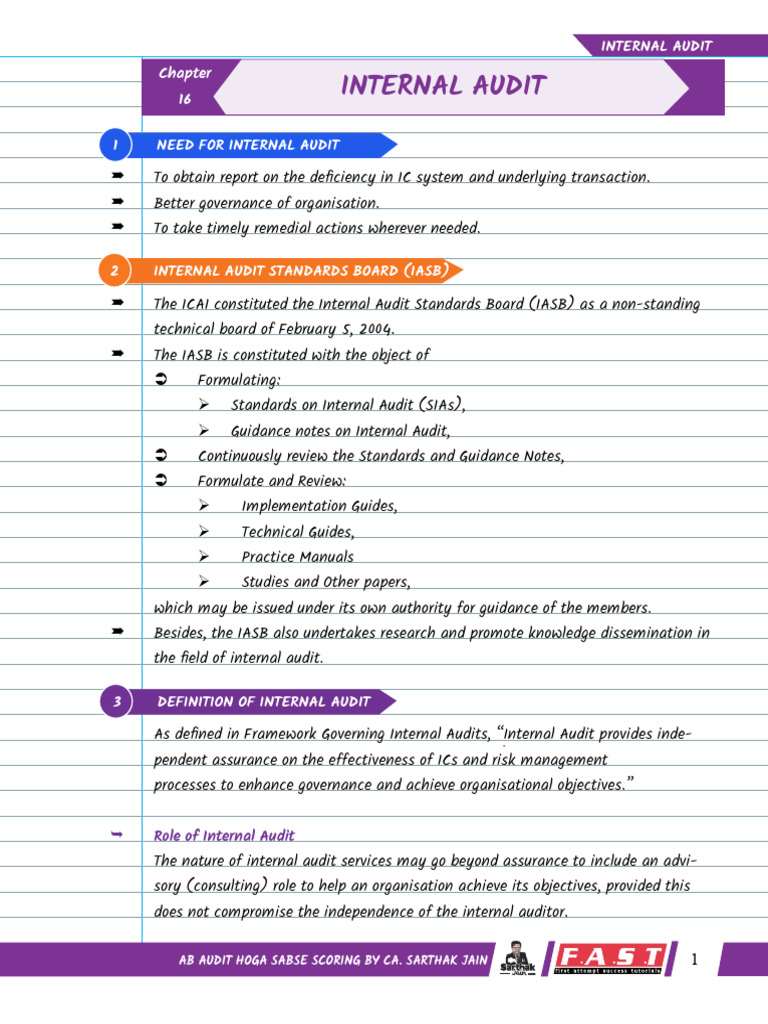 INTERNAL AUDIT
Chapter
16
INTERNAL AUDIT
1 NEED FOR INTERNAL AUDIT
➨ To obtain report on the deficiency in IC system and underlying transaction.
➨ Better governance of organisation.
➨ To take timely remedial actions wherever needed.
2 INTERNAL AUDIT STANDARDS BOARD (IASB)
➨ The ICAI constituted the Internal Audit Standards Board (IASB) as a non-standing
technical board of February 5, 2004.
➨ The IASB is constituted with the object of
➲ Formulating:
➢ Standards on Internal Audit (SIAs),
➢ Guidance notes on Internal Audit,
➲ Continuously review the Standards and Guidance Notes,
➲ Formulate and Review:
➢ Implementation Guides,
➢ Technical Guides,
➢ Practice Manuals
➢ Studies and Other papers,
which may be issued under its own authority for guidance of the members.
➨ Besides, the IASB also undertakes research and promote knowledge dissemination in
the field of internal audit.
3 DEFINITION OF INTERNAL AUDIT
As defined in Framework Governing Internal Audits, “Internal Audit provides inde-
pendent assurance on the effectiveness of ICs and risk management
processes to enhance governance and achieve organisational objectives.”
➥ Role of Internal Audit
The nature of internal audit services may go beyond assurance to include an advi-
sory (consulting) role to help an organisation achieve its objectives, provided this
does not compromise the independence of the internal auditor.
AB AUDIT HOGA SABSE SCORING BY CA. SARTHAK JAIN
Sarthak
Jain
F.A.S.T
first attempt success tutorials
1